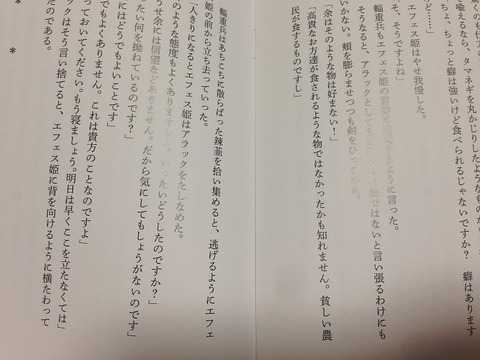 喩えるなら、タマネギを丸かじりしたようなもの
ちょ、ちょっと癖は強いけど食べられるじゃないですか？　癖はあります
けど……」
エフェス姫はやせ我慢した。
「そ、そうですよね」
輜重兵もエフェス姫の
ように言った。
そうなると、アラックとして
ではないと言い張るわけにも
いかない。頬を膨らませつつも剣を
「余はそのような物は好まない！」
「高貴なお方達が食されるような物ではなかったかも知れません。貧しい農
民が食するものですし」
輜重兵はあちこちに散らばった辣韮を拾い集めると、逃げるようにエフェ
ス姫の前から立ち去っていった。
人きりになるとエフェス姫はアラックをたしなめた。
のような態度もよくありません。いったいどうしたのですか？」
うせ余には信望などありません。だから気にしてもしょうがないのです」
たい何を拗ねているのです？」
にはどうでもよいことです」
でもよくありません。これは貴方のことなのですよ」
っておいてください。もう寝ましょう。明日は早くここを立たなくては」
ックはそう言い捨てると、エフェス姫に背を向けるように横たわって
たのである。
＊
＊